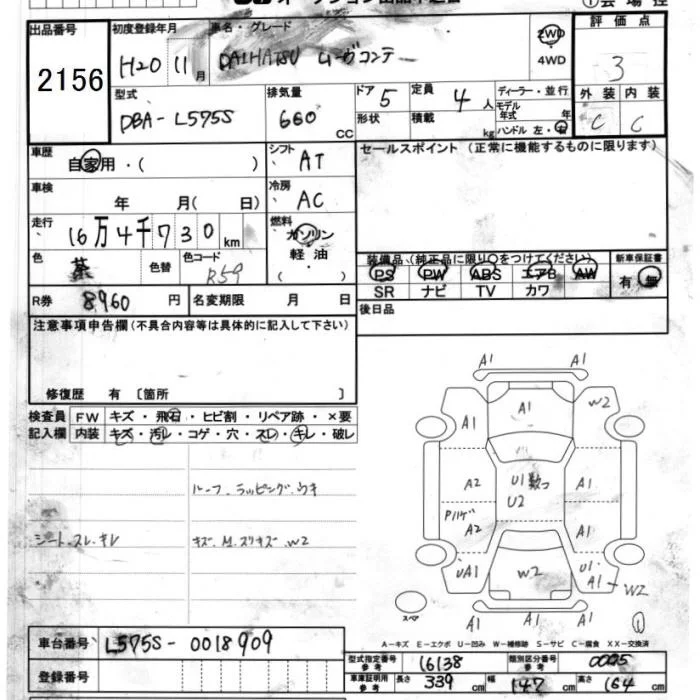 出品番号 2156
初度登録年月 H20 11月
車名・グレード DAIHATSU ムーヴコンテ
2WD
4WD
評価点 3
外装 C 内装 C
型式 DBA-L575S
排気量 660 CC
ドア 5
形状
定員 4人
積載 kg
ディーラー・並行
モデル年式 年
ハンドル 左・右
車歴 自家用・( )
シフト AT
セールスポイント (正常に機能するものに限ります)
車検 年 月( 日)
冷房 AC
走行 16万4千730km
燃料 ガソリン
軽油・
( )
色 茶 色替
色コード R59
装備品 (純正品に限り○をつけてください)
新車保証書 有 無
PS PW ABS エアB AW
SR ナビ TV カワ
R券 8960円 名変期限 月 日
後日品
注意事項申告欄(不具合内容等は具体的に記入して下さい)
修復歴 有 〔箇所 〕
検査員記入欄
FW キズ・飛石・ヒビ割・リペア跡・×要
内装 キズ・汚レ・コゲ・穴・スレ・キレ・破レ
ルーフ.ラッピング.ウキ
シート.スレ.キレ
キズ.M.スリキズ.W2
A1 A1
A1 A1 W2
A2 U1数つ A1
U2
Pハゲ A2 A1
UA1 W2 U1.
A1 W2
A1 A1
スペア
A-キズ E-エクボ U-凹み W-補修跡 S-サビ C-腐食 XX-交換済
車台番号 L575S-0018909
登録番号
型式指定番号 参考 16138
類別区分番号 参考 0005
車庫証明用 参考 長さ 339cm 幅 147cm 高さ 164cm